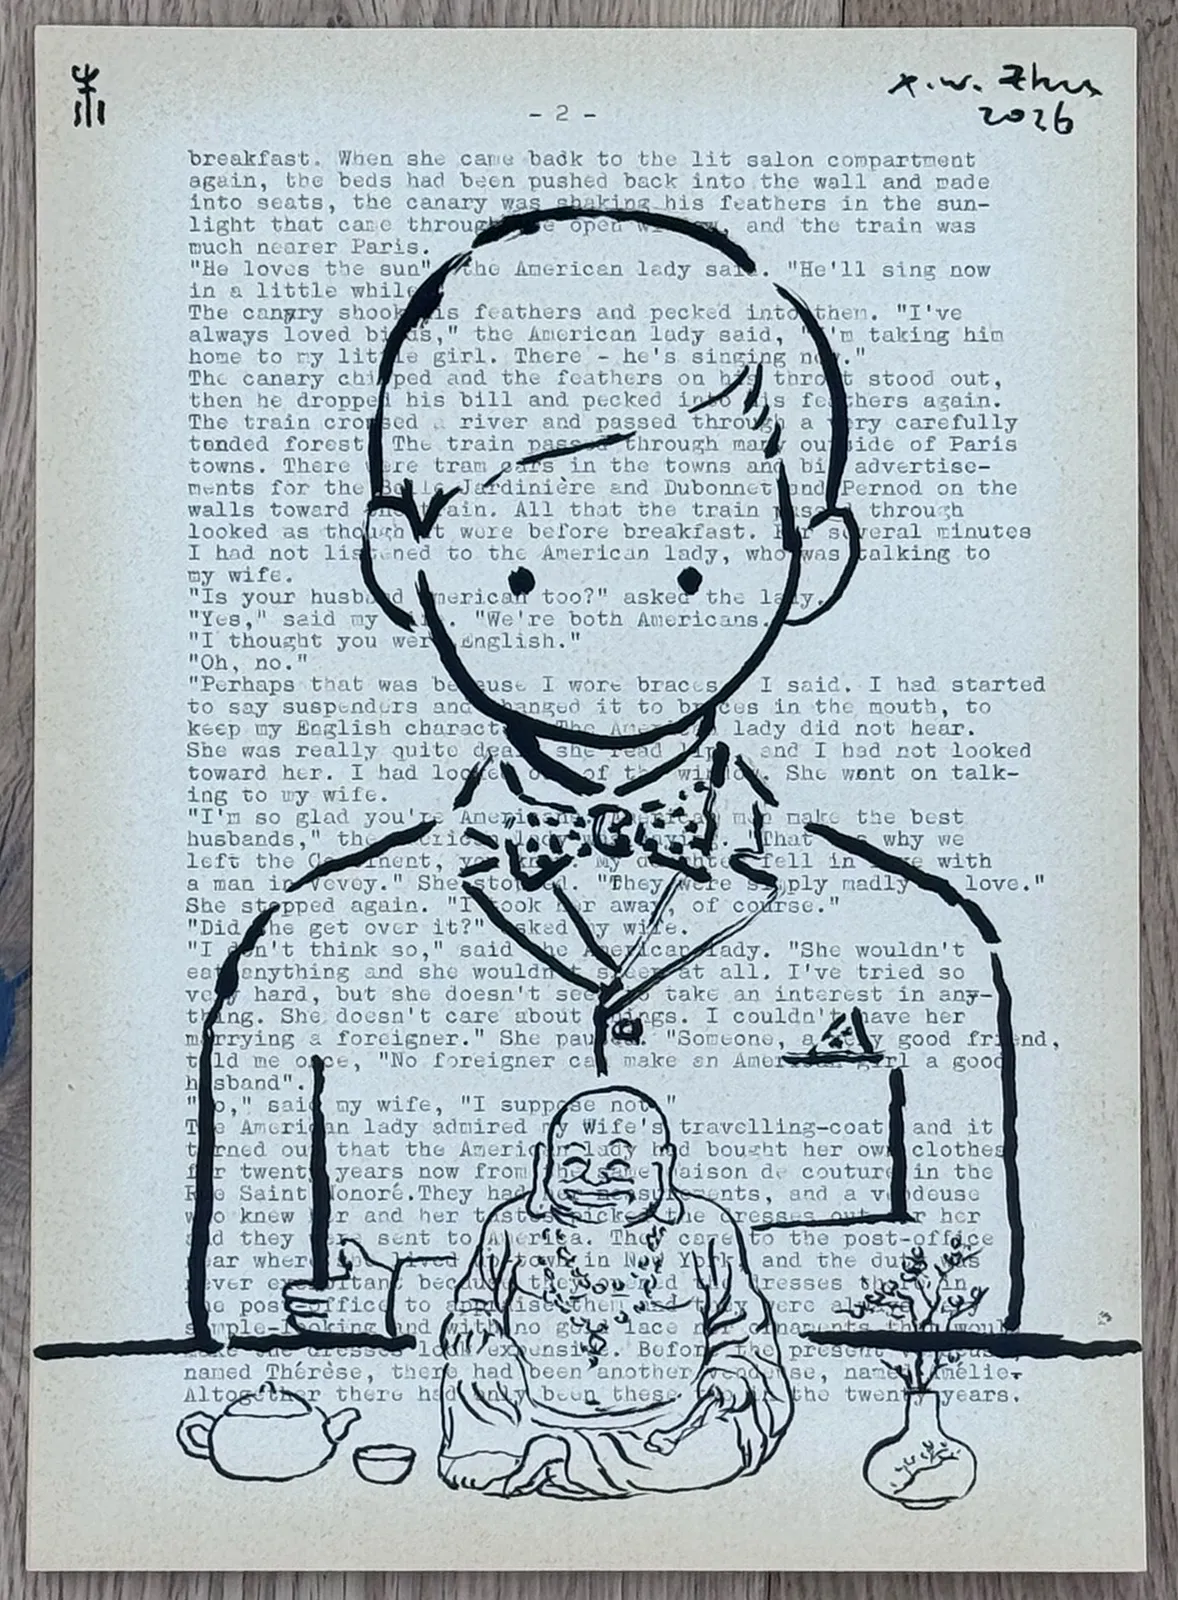 朱
x.w. Zhu
2026
- 2 -
breakfast. When she came badk to the lit salon compartment
again, the beds had been pushed back into the wall and made
into seats, the canary was shaking his feathers in the sun-
light that came through open, and the train was
much nearer Paris.
"He loves the sun" the American lady said. "He'll sing now
in a little while
The canary shook his feathers and pecked into them. "I've
always loved birds," the American lady said, "I'm taking him
home to my little girl. There - he's singing now."
The canary chirped and the feathers on his throat stood out,
then he dropped his bill and pecked into his feathers again.
The train crossed a river and passed through a very carefully
tended forest. The train passed through many outside of Paris
towns. There were tram cars in the towns and big advertise-
ments for the Belle Jardinière and Dubonnet and Pernod on the
walls toward train. All that the train passed through
looked as though it were before breakfast. For several minutes
I had not listened to the American lady, who was talking to
my wife.
"Is your husband American too?" asked the lady.
"Yes," said my wife. "We're both Americans.
"I thought you were English."
"Oh, no."
"Perhaps that was because I wore braces I said. I had started
to say suspenders and changed it to braces in the mouth, to
keep my English character The American lady did not hear.
She was really quite deaf she read lips and I had not looked
toward her. I had looked out of the window. She went on talk-
ing to my wife.
"I'm so glad you're Americans American men make the best
husbands," the American lady was saying. "That why we
left the Continent, you know. My daughter fell in love with
a man in Vevey." She stopped. "They were simply madly love."
She stopped again. "I took her away, of course."
"Did she get over it?" asked my wife.
"I don't think so," said the American lady. "She wouldn't
eat anything and she wouldn't sleep at all. I've tried so
very hard, but she doesn't seem to take an interest in any-
thing. She doesn't care about things. I couldn't have her
marrying a foreigner." She paused. "Someone, a very good friend,
told me once, "No foreigner can make an American girl a good
husband".
"No," said my wife, "I suppose not."
The American lady admired my Wife's travelling-coat and it
turned out that the American lady had bought her own clothes
for twenty years now from the same maison de couture in the
Rue Saint Honoré.They had her measurements, and a vendeuse
who knew her and her tastes picked the dresses out for her
and they were sent to America. They came to the post-office
near where she lived town in New York and the duty was
never exorbitant because they opened the dresses there in
the post-office to appraise them and they were always
simple-looking and with no gold lace nor ornaments that would
make the dresses look expensive. Before the present vendeuse,
named Thérèse, there had been another vendeuse, named Amélie.
Altogether there had only been these two in the twenty years.